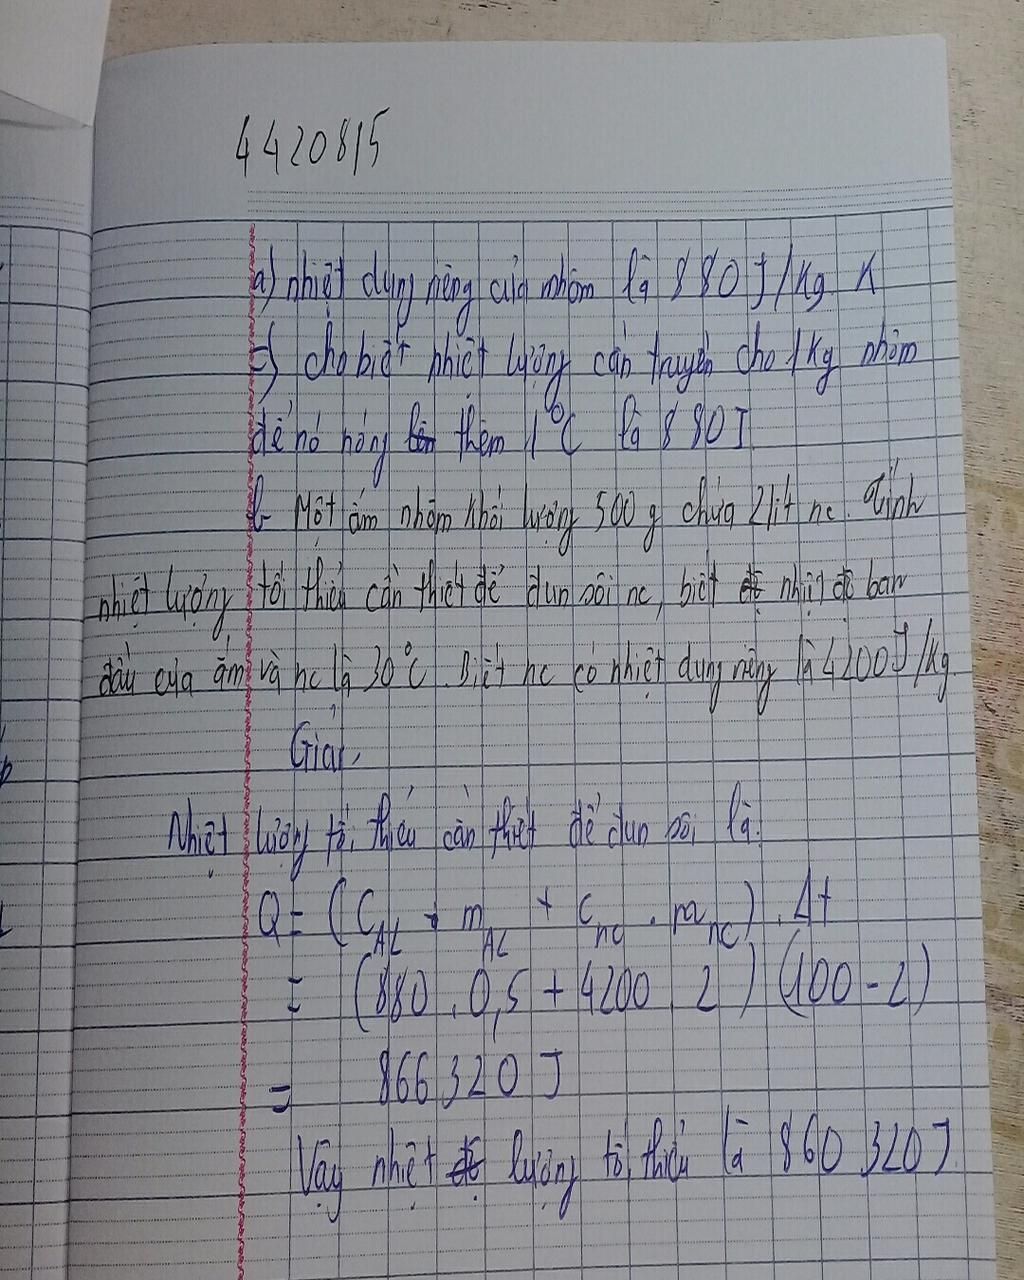 4420815
a) nhiệt dung riêng của nhôm là 880 J/kg K
=) cho biết nhiệt lượng cần truyền cho 1kg nhôm
để nó nóng thêm 1°C là 880J
b- Một ấm nhôm khối lượng 500g chứa 2lit nc. Tính
nhiệt lượng tối thiểu cần thiết để đun sôi nc, biết nhiệt độ ban
đầu của ấm và nc là 30°C. Biết nc có nhiệt dung riêng là 4200J/kg
Giải
Nhiệt lượng tối thiểu cần thiết để đun sôi là:
Q = (C_AL . m_AL + C_nc . m_nc) . Δt
= (880 . 0,5 + 4200 . 2) (100 - 2)
= 866320 J
Vậy nhiệt lượng tối thiểu là 860320J